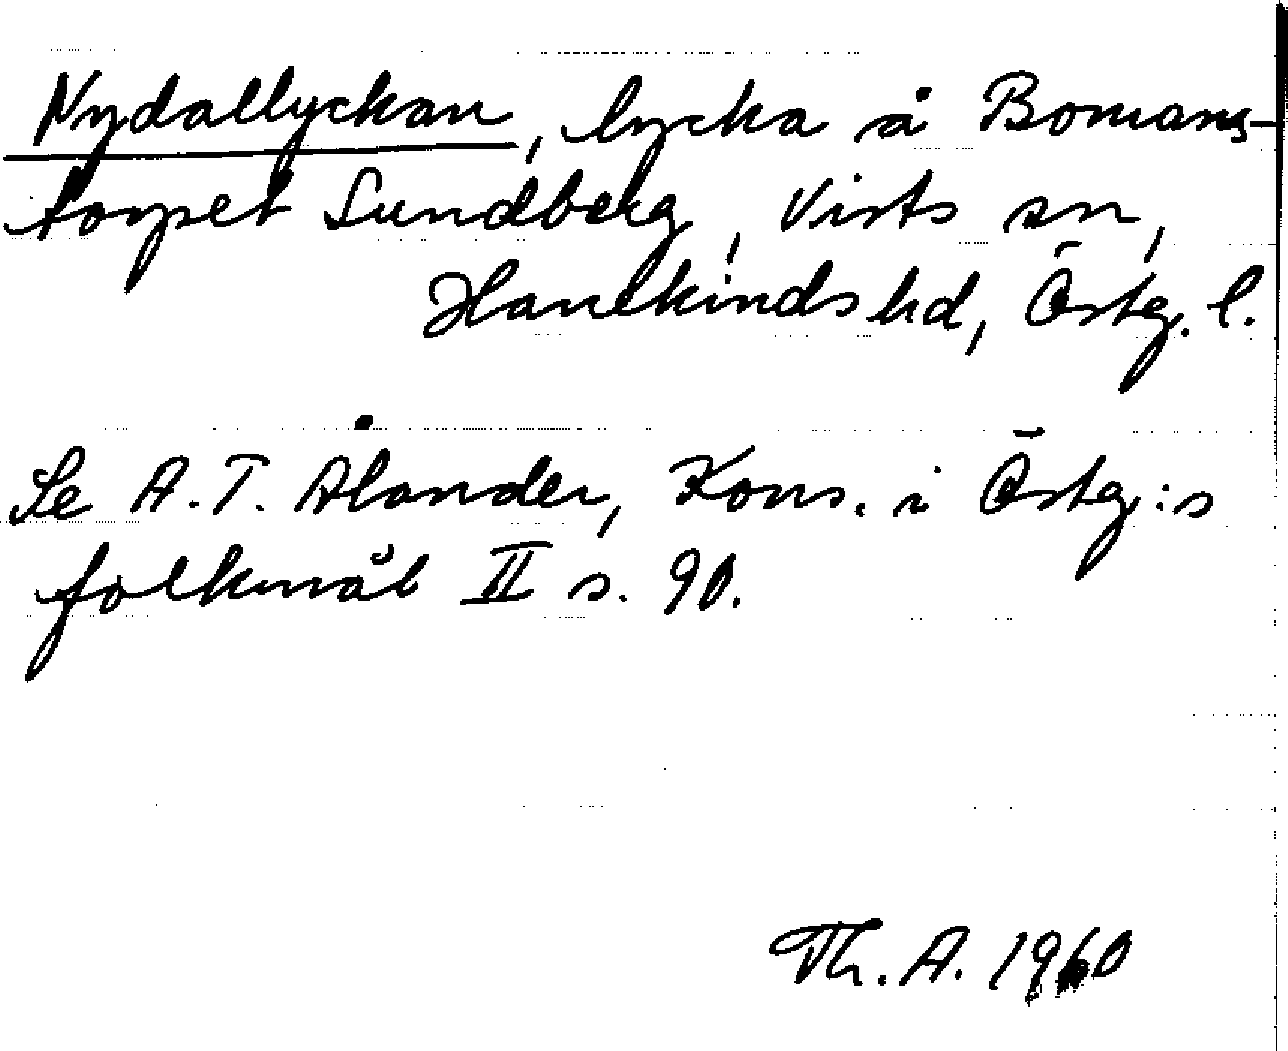 Nydallyckan, lycka å Bomans-
torpet Lundberg, Vists sn,
Hanekinds hd, Östg. l.
Se A.T. Ålander, Kons. i Östg:s
folkmål II s. 90.
Th. A. 1960